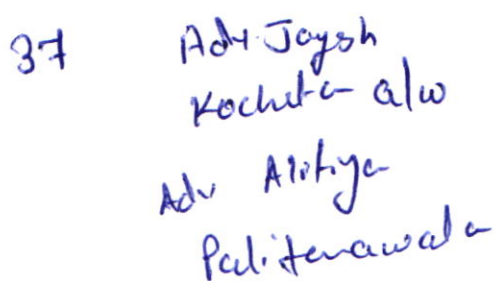 37 Adv. Jaysh
Kocheta a/w
Adv Alifiya
Palitanawala